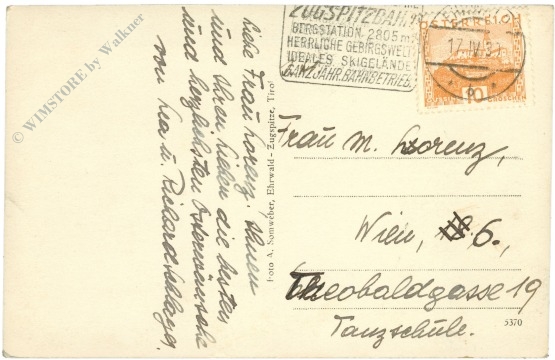 ZUGSPITZBAHN
BERGSTATION 2805 m
HERRLICHE GEBIRGSWELT
IDEALES SKIGELÄNDE
GANZJÄHR. BAHNBETRIEB.
ÖSTERREICH
17.IV.3
10
GROSCHEN
© WIMSTORE by Walkner
Liebe Frau Lorenz. Ihnen
und Ihren Lieben die besten
und herzlichsten Osterwünsche
von Lea u. Richard
Foto A. Somweber, Ehrwald - Zugspitze, Tirol
Frau M. Lorenz,
Wien, 6.,
Theobaldgasse 19
Tanzschule.
5370